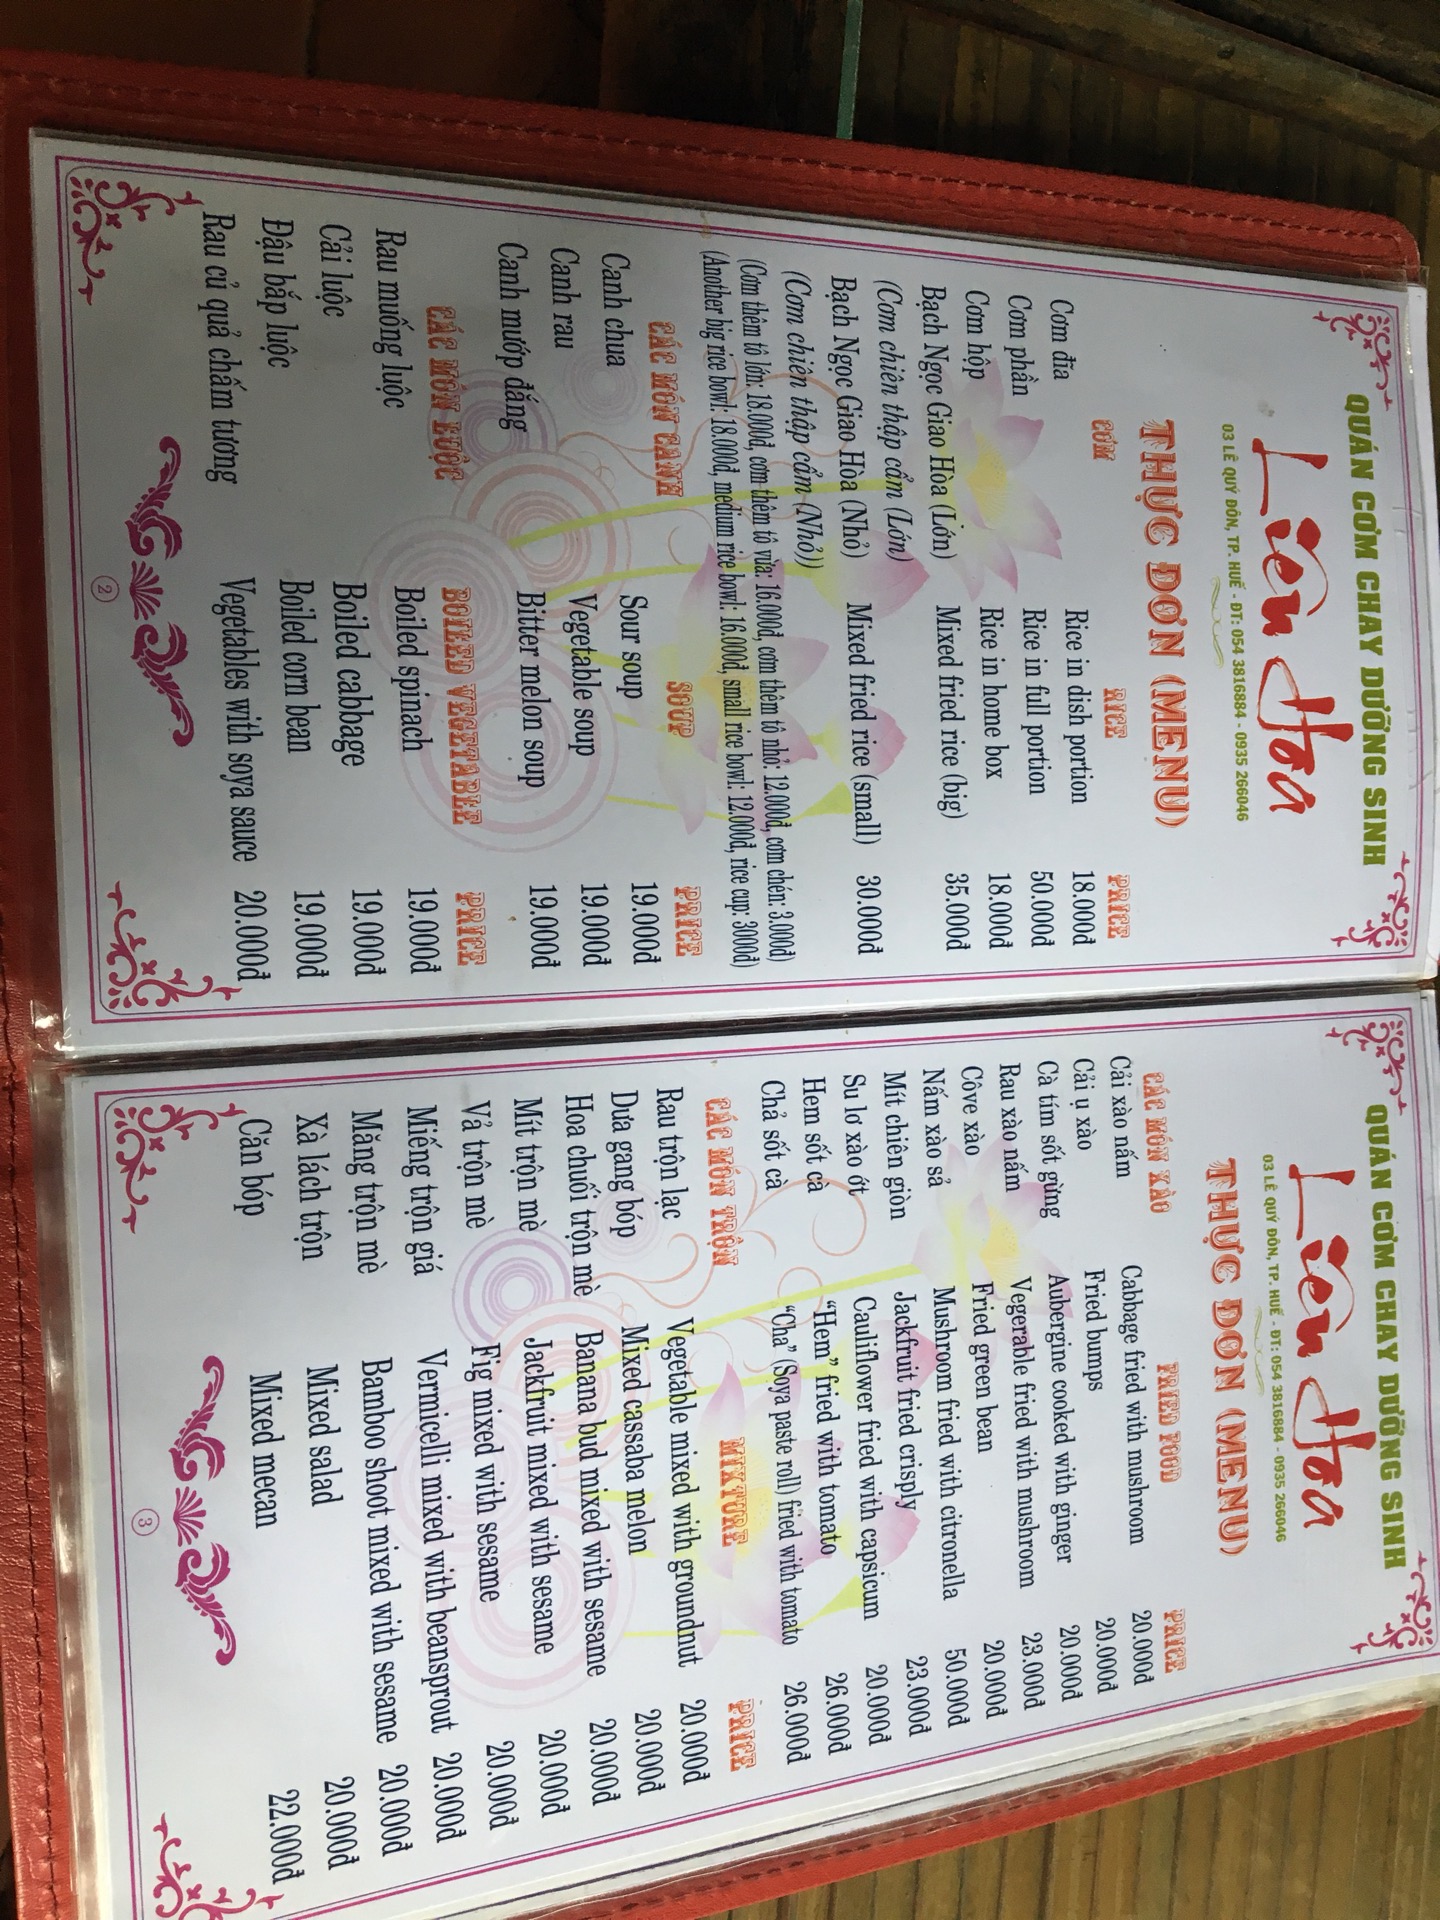 QUÁN CƠM CHAY DƯỠNG SINH
Liên Hoa
03 LÊ QUÝ ĐÔN, TP. HUẾ - ĐT: 054 3816884 - 0935 266046
THỰC ĐƠN (MENU)
CƠM RICE PRICE
Cơm đĩa Rice in dish portion 18.000đ
Cơm phần Rice in full portion 50.000đ
Cơm hộp Rice in home box 18.000đ
Bạch Ngọc Giao Hòa (Lớn) Mixed fried rice (big) 35.000đ
(Cơm chiên thập cẩm (Lớn)
Bạch Ngọc Giao Hòa (Nhỏ) Mixed fried rice (small) 30.000đ
(Cơm chiên thập cẩm (Nhỏ))
(Cơm thêm tô lớn: 18.000đ, cơm thêm tô vừa: 16.000đ, cơm thêm tô nhỏ: 12.000đ, cơm chén: 3.000đ)
(Another big rice bowl: 18.000đ, medium rice bowl: 16.000đ, small rice bowl: 12.000đ, rice cup: 3000đ)
CÁC MÓN CANH SOUP PRICE
Canh chua Sour soup 19.000đ
Canh rau Vegetable soup 19.000đ
Canh mướp đắng Bitter melon soup 19.000đ
CÁC MÓN LUỘC BOILED VEGETABLE PRICE
Rau muống luộc Boiled spinach 19.000đ
Cải luộc Boiled cabbage 19.000đ
Đậu bắp luộc Boiled corn bean 19.000đ
Rau củ quả chấm tương Vegetables with soya sauce 20.000đ
2
QUÁN CƠM CHAY DƯỠNG SINH
Liên Hoa
03 LÊ QUÝ ĐÔN, TP. HUẾ - ĐT: 054 3816884 - 0935 266046
THỰC ĐƠN (MENU)
CÁC MÓN XÀO FRIED FOOD PRICE
Cải xào nấm Cabbage fried with mushroom 20.000đ
Cải ụ xào Fried bumps 20.000đ
Cà tím sốt gừng Aubergine cooked with ginger 20.000đ
Rau xào nấm Vegerable fried with mushroom 23.000đ
Côve xào Fried green bean 20.000đ
Nấm xào sả Mushroom fried with citronella 50.000đ
Mít chiên giòn Jackfruit fried crisply 23.000đ
Su lơ xào ớt Cauliflower fried with capsicum 20.000đ
Hem sốt cà "Hem" fried with tomato 26.000đ
Chả sốt cà "Cha" (Soya paste roll) fried with tomato 26.000đ
CÁC MÓN TRỘN MIXTURE PRICE
Rau trộn lạc Vegetable mixed with groundnut 20.000đ
Dưa gang bóp Mixed cassaba melon 20.000đ
Hoa chuối trộn mè Banana bud mixed with sesame 20.000đ
Mít trộn mè Jackfruit mixed with sesame 20.000đ
Vả trộn mè Fig mixed with sesame 20.000đ
Miếng trộn giá Vermicelli mixed with beansprout 20.000đ
Măng trộn mè Bamboo shoot mixed with sesame 20.000đ
Xà lách trộn Mixed salad 20.000đ
Căn bóp Mixed mecan 22.000đ
3